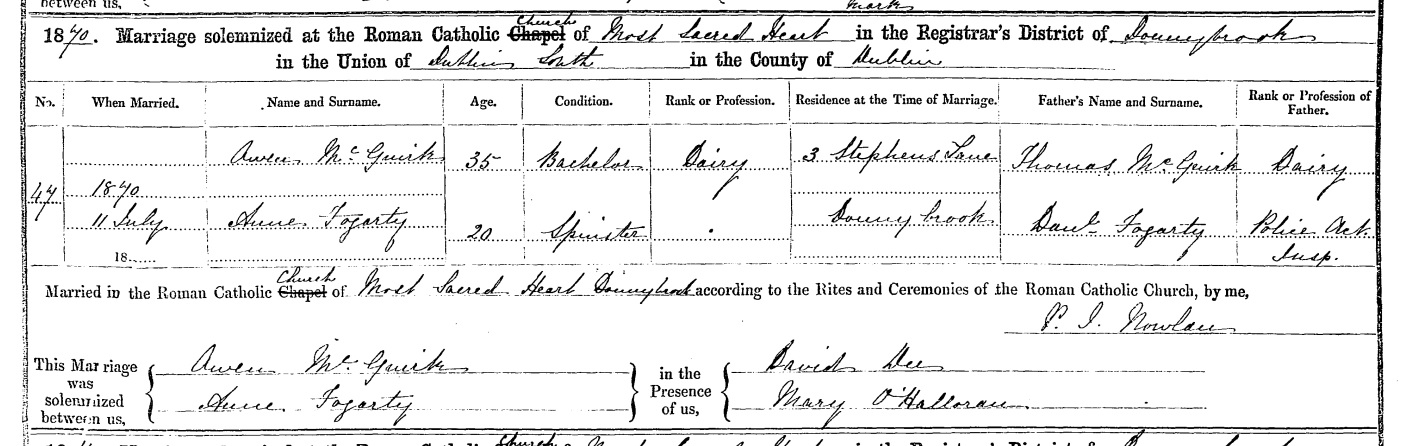 between us,
mark
1870. Marriage solemnized at the Roman Catholic Chapel Church of Most Sacred Heart in the Registrar's District of Donnybrook
in the Union of Dublin South in the County of Dublin
No. When Married. Name and Surname. Age. Condition. Rank or Profession. Residence at the Time of Marriage. Father's Name and Surname. Rank or Profession of Father.
Owen McGuirk 35 Bachelor Dairy 3 Stephens Lane Thomas McGuirk Dairy
47 1870
11 July Anne Fogarty 20 Spinster Donnybrook Danl Fogarty Police Act.
18 Insp.
Church
Married in the Roman Catholic Chapel of Most Sacred Heart Donnybrook according to the Rites and Ceremonies of the Roman Catholic Church, by me,
P. J. Nowlan
This Marriage was solemnized between us,
Owen McGuirk
Anne Fogarty
in the Presence of us,
David Dee
Mary O'Halloran